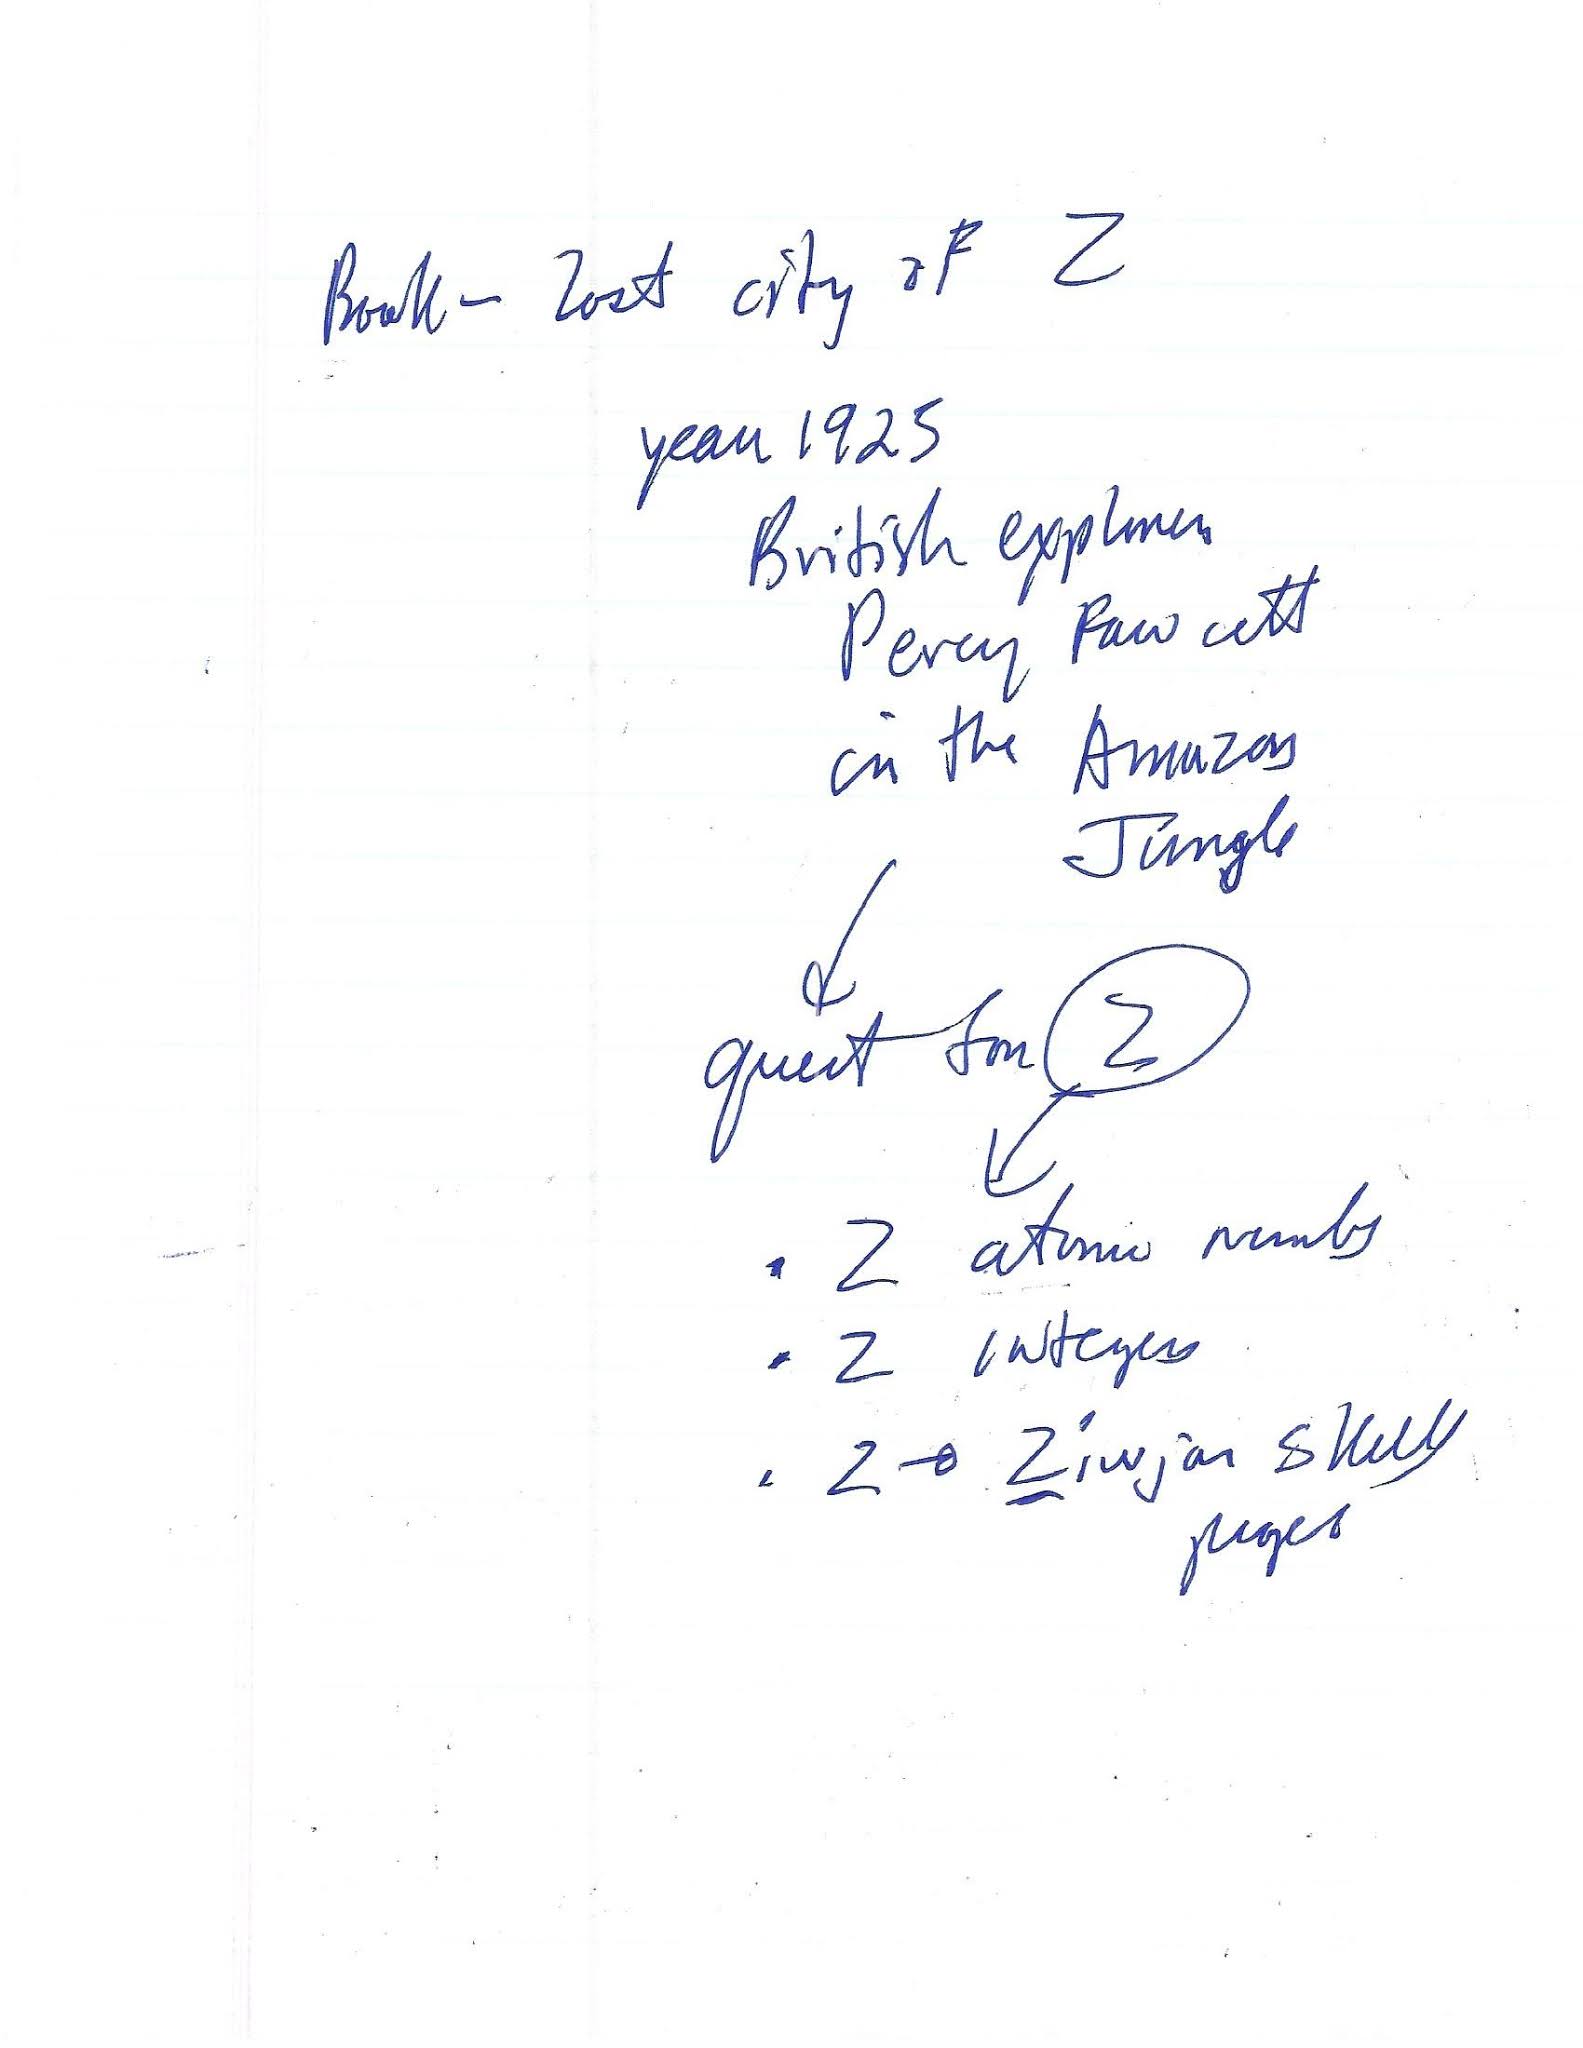 Book - Lost city of Z
year 1925
British explorer
Percy Fawcett
in the Amazon
Jungle
quest for Z
• Z atomic number
• Z integers
• Z → Ziwjar skelly
pages